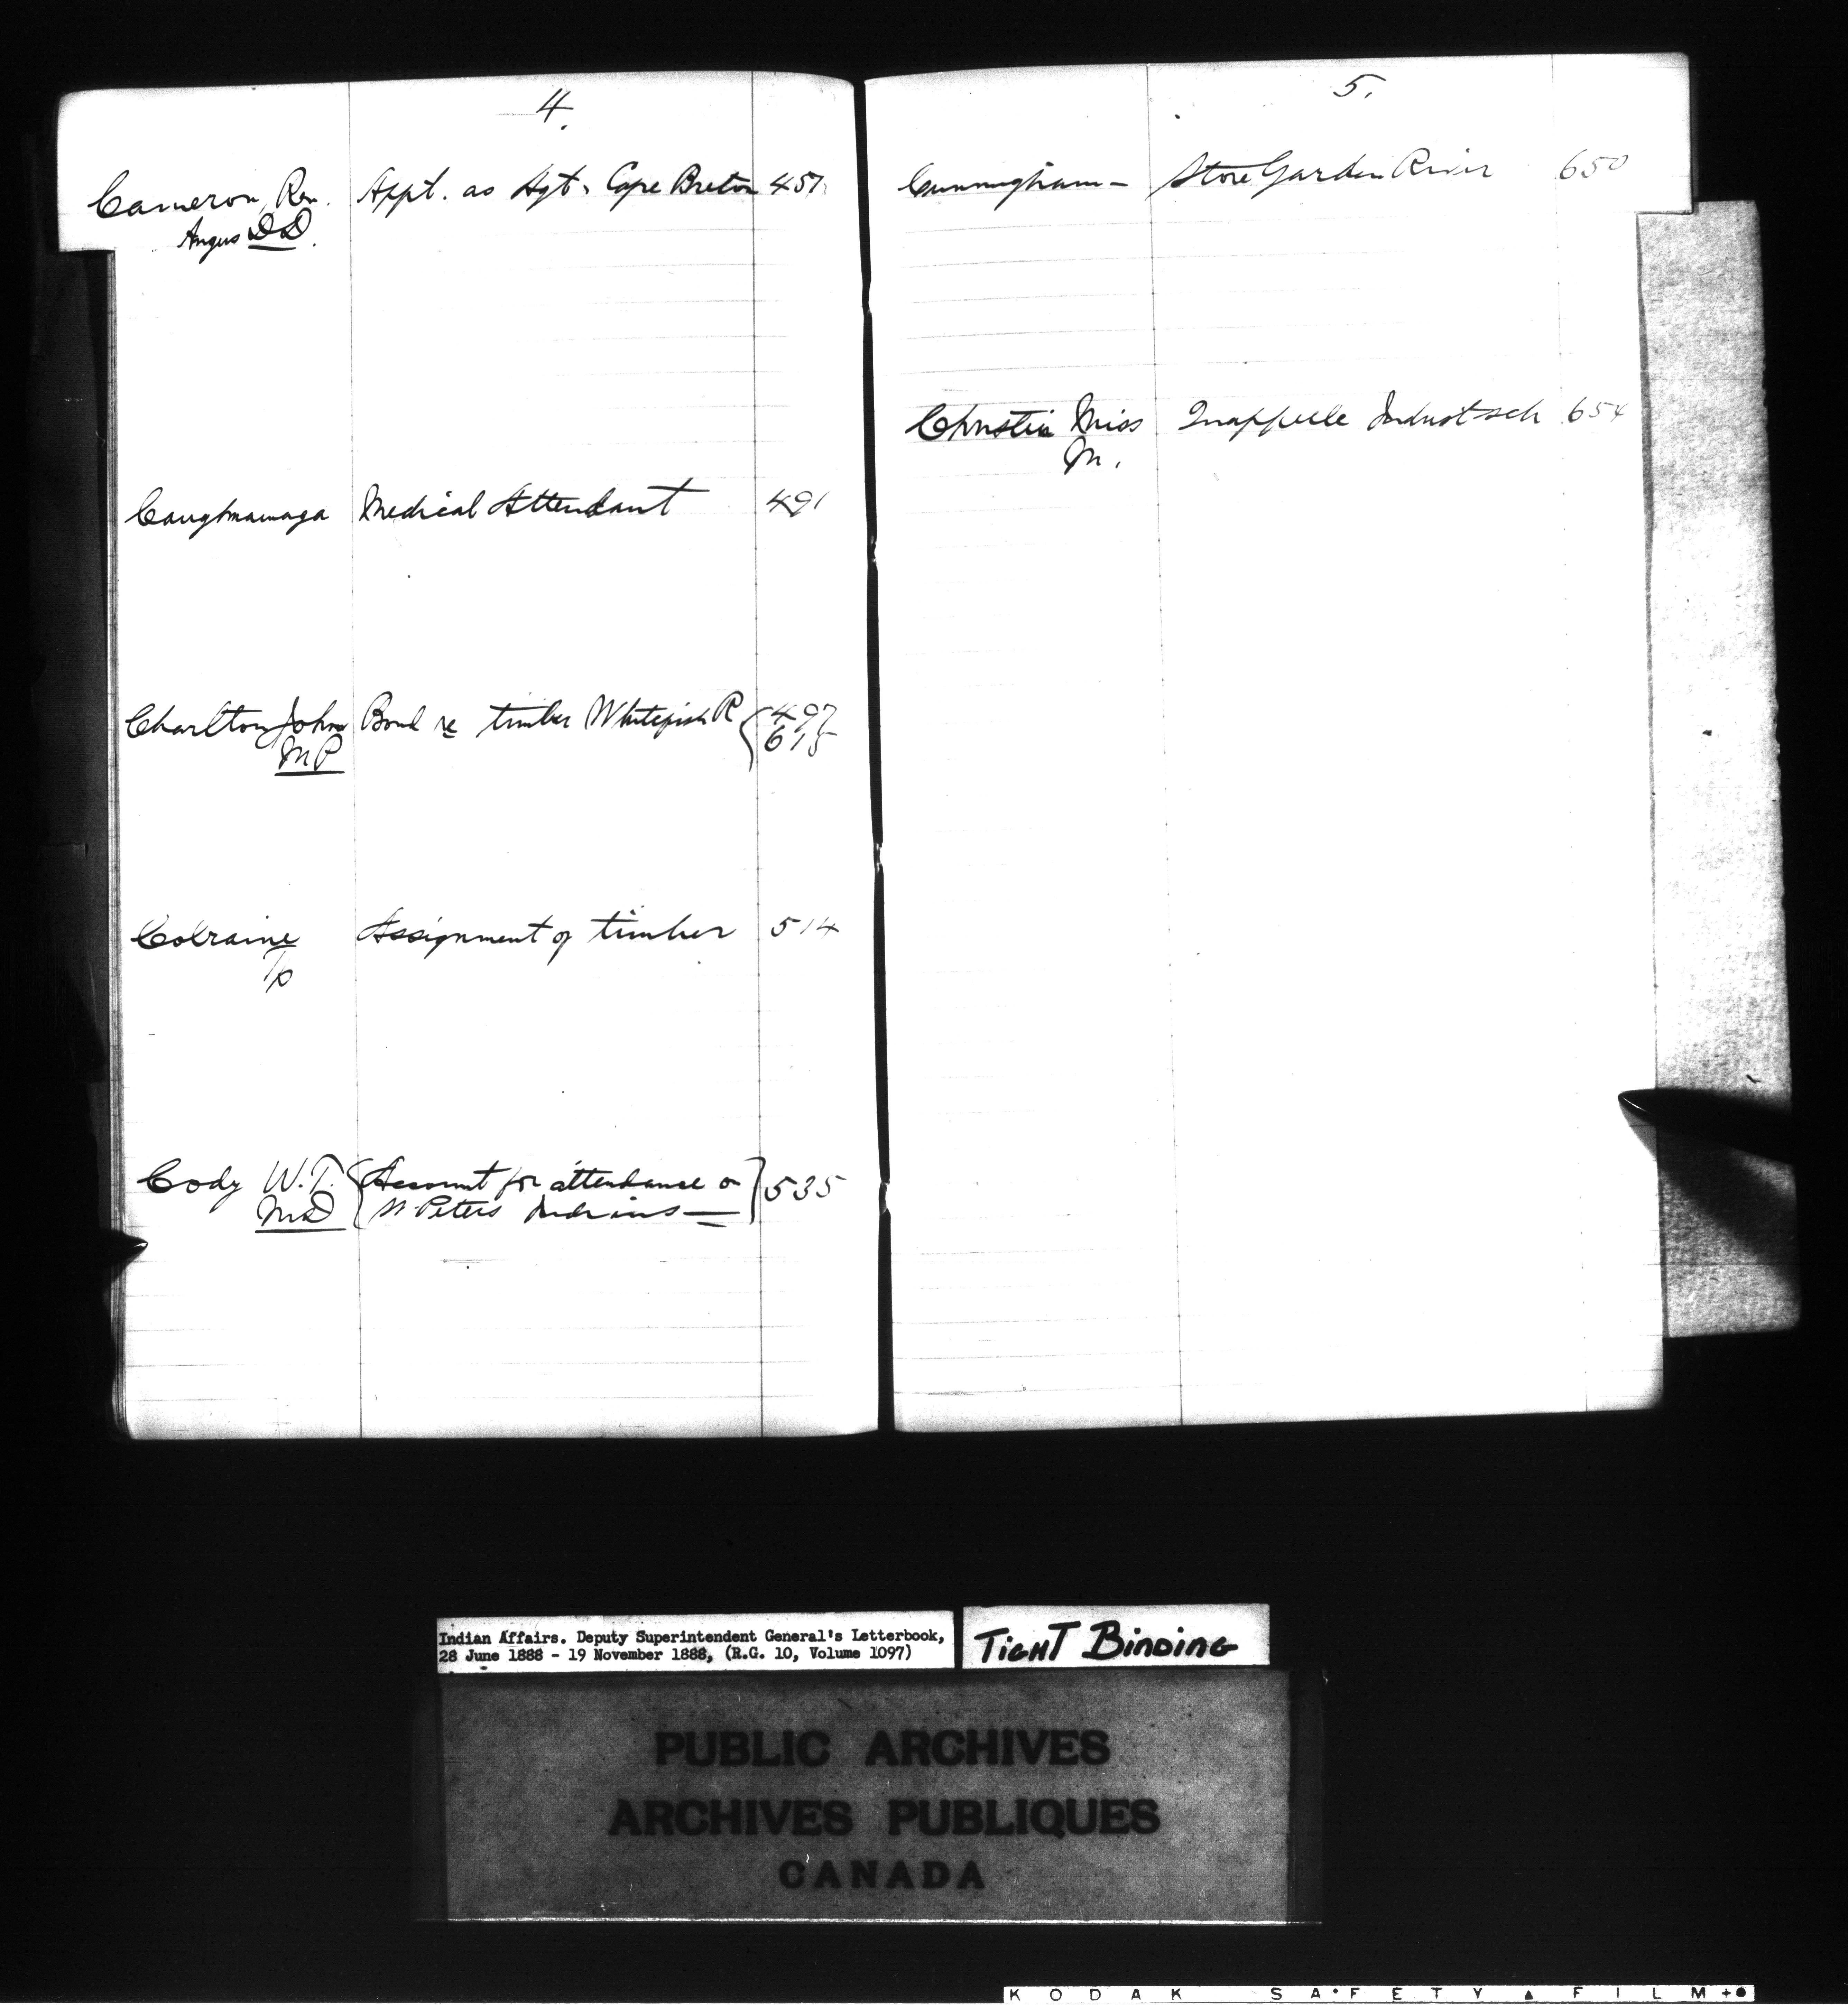 4.
Cameron, Rev. Appt. as Agt. Cape Breton 457
Angus DD.
Caughnawaga Medical Attendant 491
Charlton John Bond re timber Whitefish R { 497
MP 615
Colraine Assignment of timber 514
Tp
Cody W.T. { Account for attendance on } 535
MD St Peters Indians —
5.
Cunningham - Store Garden River 650
Christie Miss Quappelle Indust sch 654
M.
Indian Affairs. Deputy Superintendent General's Letterbook,
28 June 1888 - 19 November 1888, (R.G. 10, Volume 1097)
TIGHT BINDING
PUBLIC ARCHIVES
ARCHIVES PUBLIQUES
CANADA
KODAK SAFETY FILM